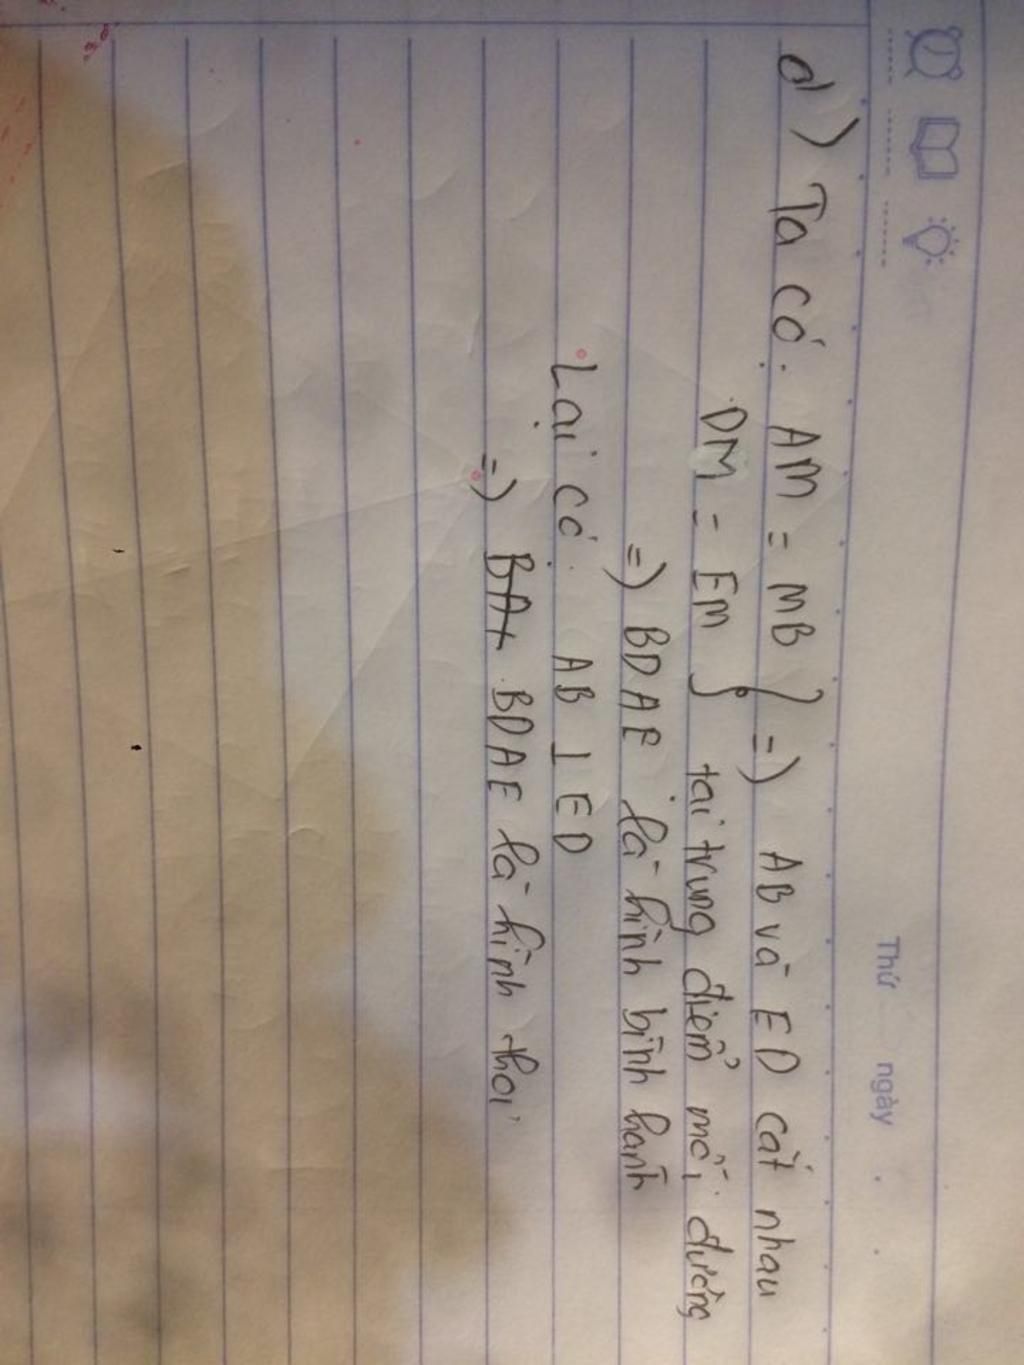 Thứ ngày
d) Ta có: AM = MB } => AB và ED cắt nhau
DM = EM } tại trung điểm mỗi đường
=> BDAE là hình bình hành
Lại có: AB ⊥ ED
=> BDAE là hình thoi